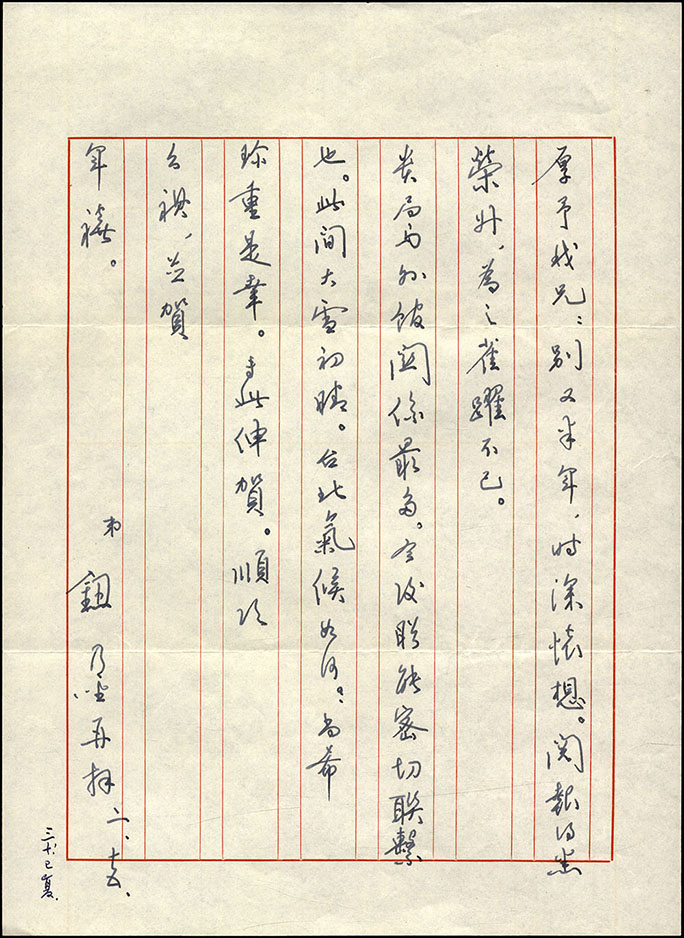 厚予我兄：別又半年，时深懷想。閱報得悉
榮升，為之雀躍不已。
貴局与外館関係最多。今后盼能密切联繫
也。此間大雪初晴。台北氣候如何？尚希
珍重是幸。专此伸賀。順頌
公祺，並賀
年禧。
弟 鈕乃聖再拜 二、十五、
三.十.已复.